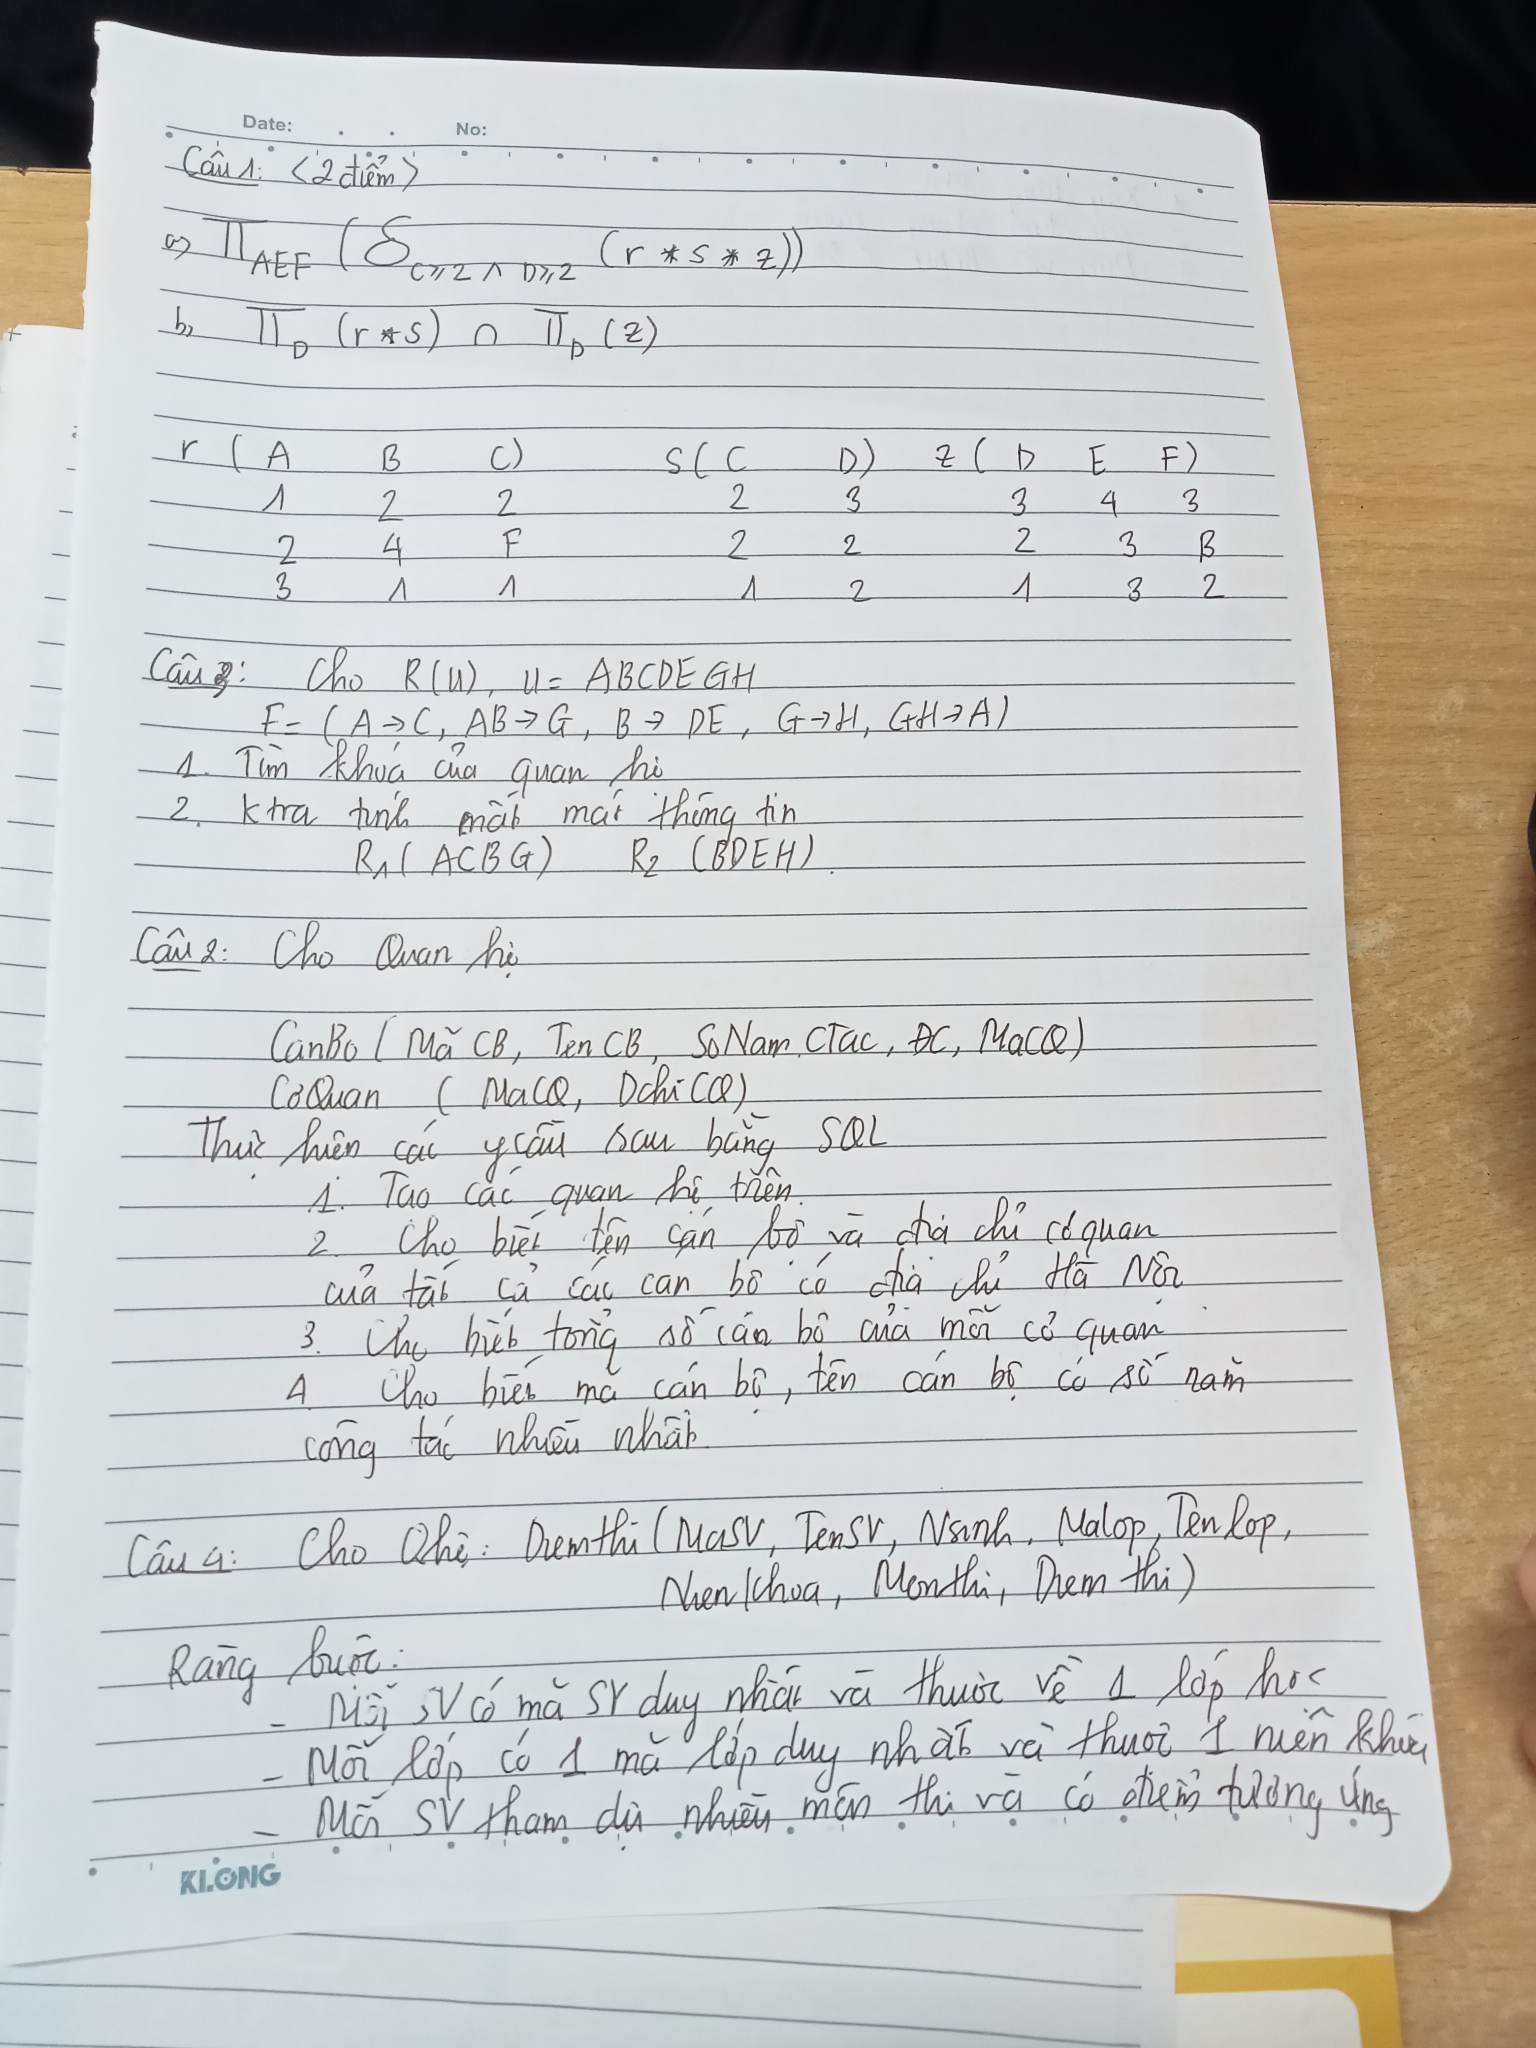 Date: No:
Câu 1: <2 điểm>
a) Π AEF (δ C≥2 ∧ D≥2 (r * s * z))
b, Π D (r * s) ∩ Π D (z)
r ( A B C) S( C D) z ( D E F)
1 2 2 2 3 3 4 3
2 4 F 2 2 2 3 B
3 1 1 1 2 1 3 2
Câu 3: Cho R(U), U = ABCDEGH
F = (A → C, AB → G, B → DE, G → H, GH → A)
1. Tìm khoá của quan hệ
2. Ktra tính mất mát thông tin
R1 (ACBG) R2 (BDEH).
Câu 2: Cho Quan hệ
CanBo ( Mã CB, Ten CB, SoNam CTac, ĐC, MaCQ)
CơQuan ( MaCQ, Dchi CQ)
Thực hiện các ycầu sau bằng SQL
1. Tạo các quan hệ trên.
2. Cho biết tên cán bộ và địa chỉ cơ quan
của tất cả các cán bộ có địa chỉ Hà Nội
3. Cho biết tổng số cán bộ của mỗi cơ quan
4 Cho biết mã cán bộ, tên cán bộ có số năm
công tác nhiều nhất.
Câu 4: Cho Qhệ: Diemthi (MaSV, TenSV, Nsinh, Malop, Tên lop,
Nien khoa, Monthi, Diem thi)
Ràng buộc:
- Mỗi SV có mã SV duy nhất và thuộc về 1 lớp học
- Mỗi lớp có 1 mã lớp duy nhất và thuộc 1 niên khóa
- Mỗi SV tham dự nhiều môn thi và có điểm tương ứng
KLONG